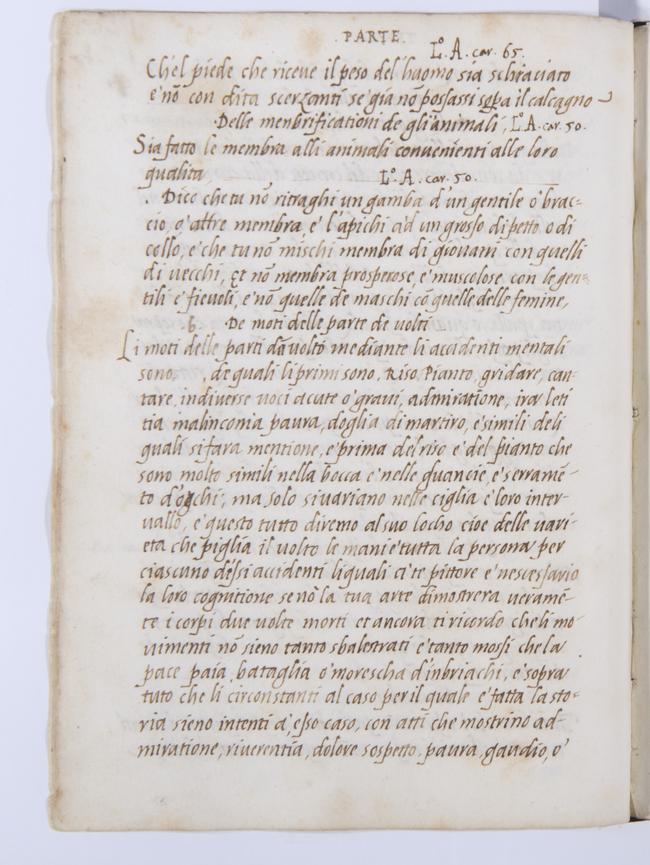 . PARTE.
L.º A. car. 65.
Ch'el piede che riceve il peso del huomo sia schiaciato
e nō con dita scerzanti se gia nō possassi sopa il calcagno
Delle menbrificationi de gli animali, L.º A. car. 50.
Sia fatto le membra alli animali convenienti alle loro
qualita, L.º A. car. 50.
. Dico che tu nō ritraghi un gamba d'un gentile o' brac=
cio, o' altre membra, e' l'apichi ad un grosso di petto o di
collo, e' che tu nō mischi membra di giovani con quelli
di vecchi, et nō membra prosperose, e' muscolose con le gen=
tili e' fievoli, e' nō quelle de maschi cō quelle delle femine,
6. De moti delle parte de volti
Li moti delle parti volto mediante li accidenti mentali
sono, de quali li primi sono, Riso, Pianto, gridare, can=
tare, in diverse voci accute o' gravi, admiratione, ira, leti
tia malinconia paura, doglia di martiro, e' simili deli
quali si fara mentione, e' prima del riso e' del pianto che
sono molto simili nella bocca e' nelle guancie, e' serramē=
to d'ochi, ma solo si variano nelle ciglia e' loro inter=
vallo, e' questo tutto diremo al suo locho cioe delle vari=
eta che piglia il volto le mani e' tutta la persona per
ciascuno d'essi accidenti li quali a' te pittore e' nescessario
la loro cognitione se nō la tua arte dimostrera veramē=
te i corpi due volte morti et ancora ti ricordo che li mo
vimenti nō sieno tanto sbalestrati e' tanto mossi che la
pace paia, battaglia o' morescha d'inbriachi, e' sopra
tuto che li circonstanti al caso per il quale e' fatta la sto=
ria sieno intenti a' esso caso, con atti che mostrino ad=
miratione, riverentia, dolore sospetto, paura, gaudio, o'